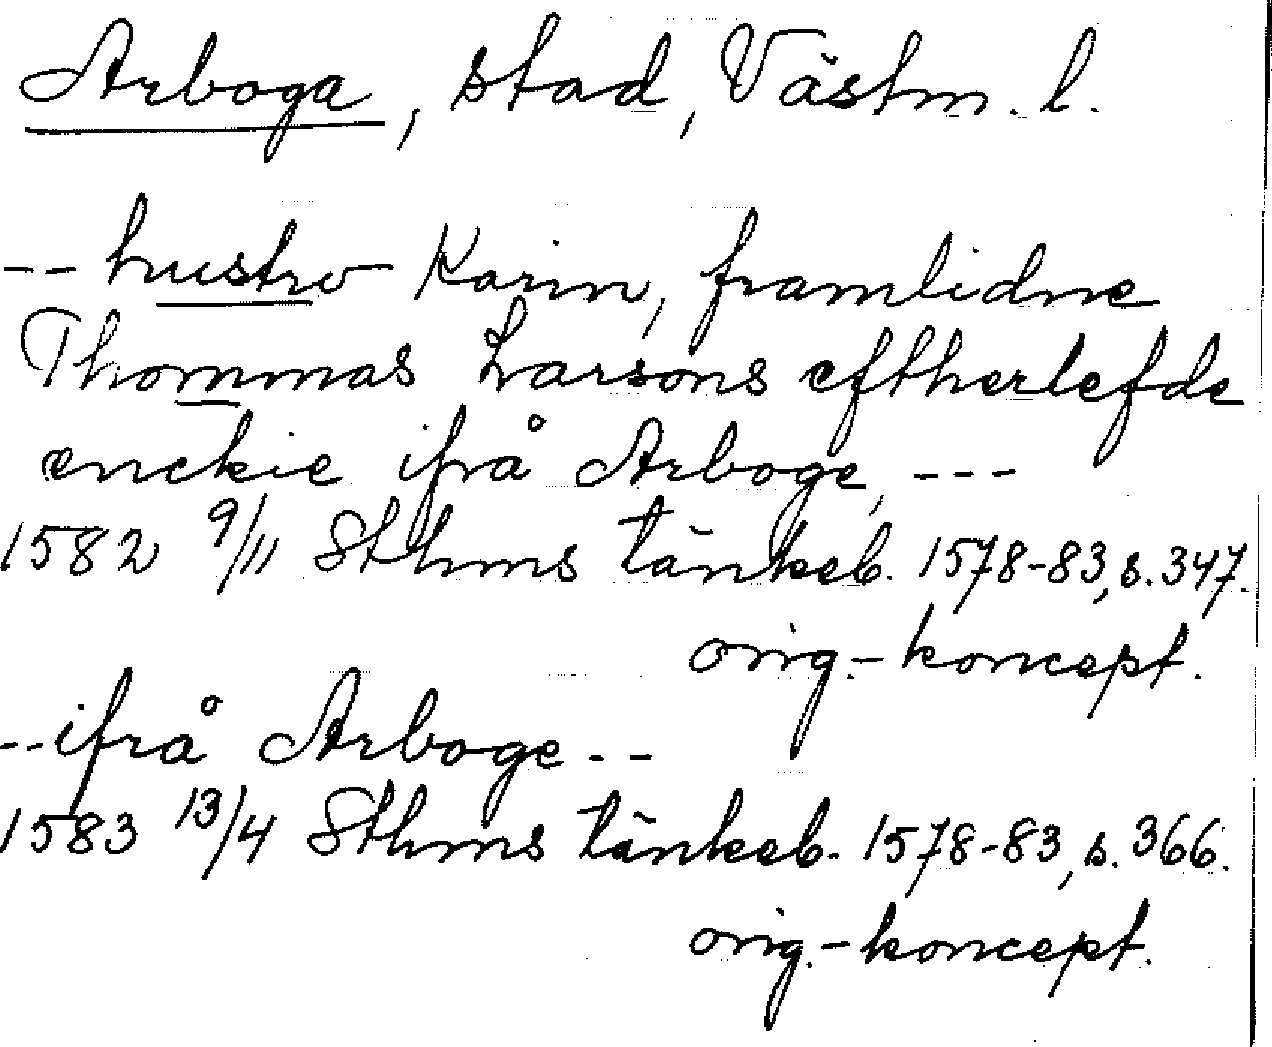 Arboga, stad, Västm. l.
-- hustro Karin, framlidne
Thommas Larsons eftherlefde
enckie ifrå Arboge, ---
1582 9/11 Sthms tänkeb. 1578-83, s. 347.
orig.-koncept.
-- ifrå Arboge --
1583 13/4 Sthms tänkeb. 1578-83, s. 366.
orig.-koncept.